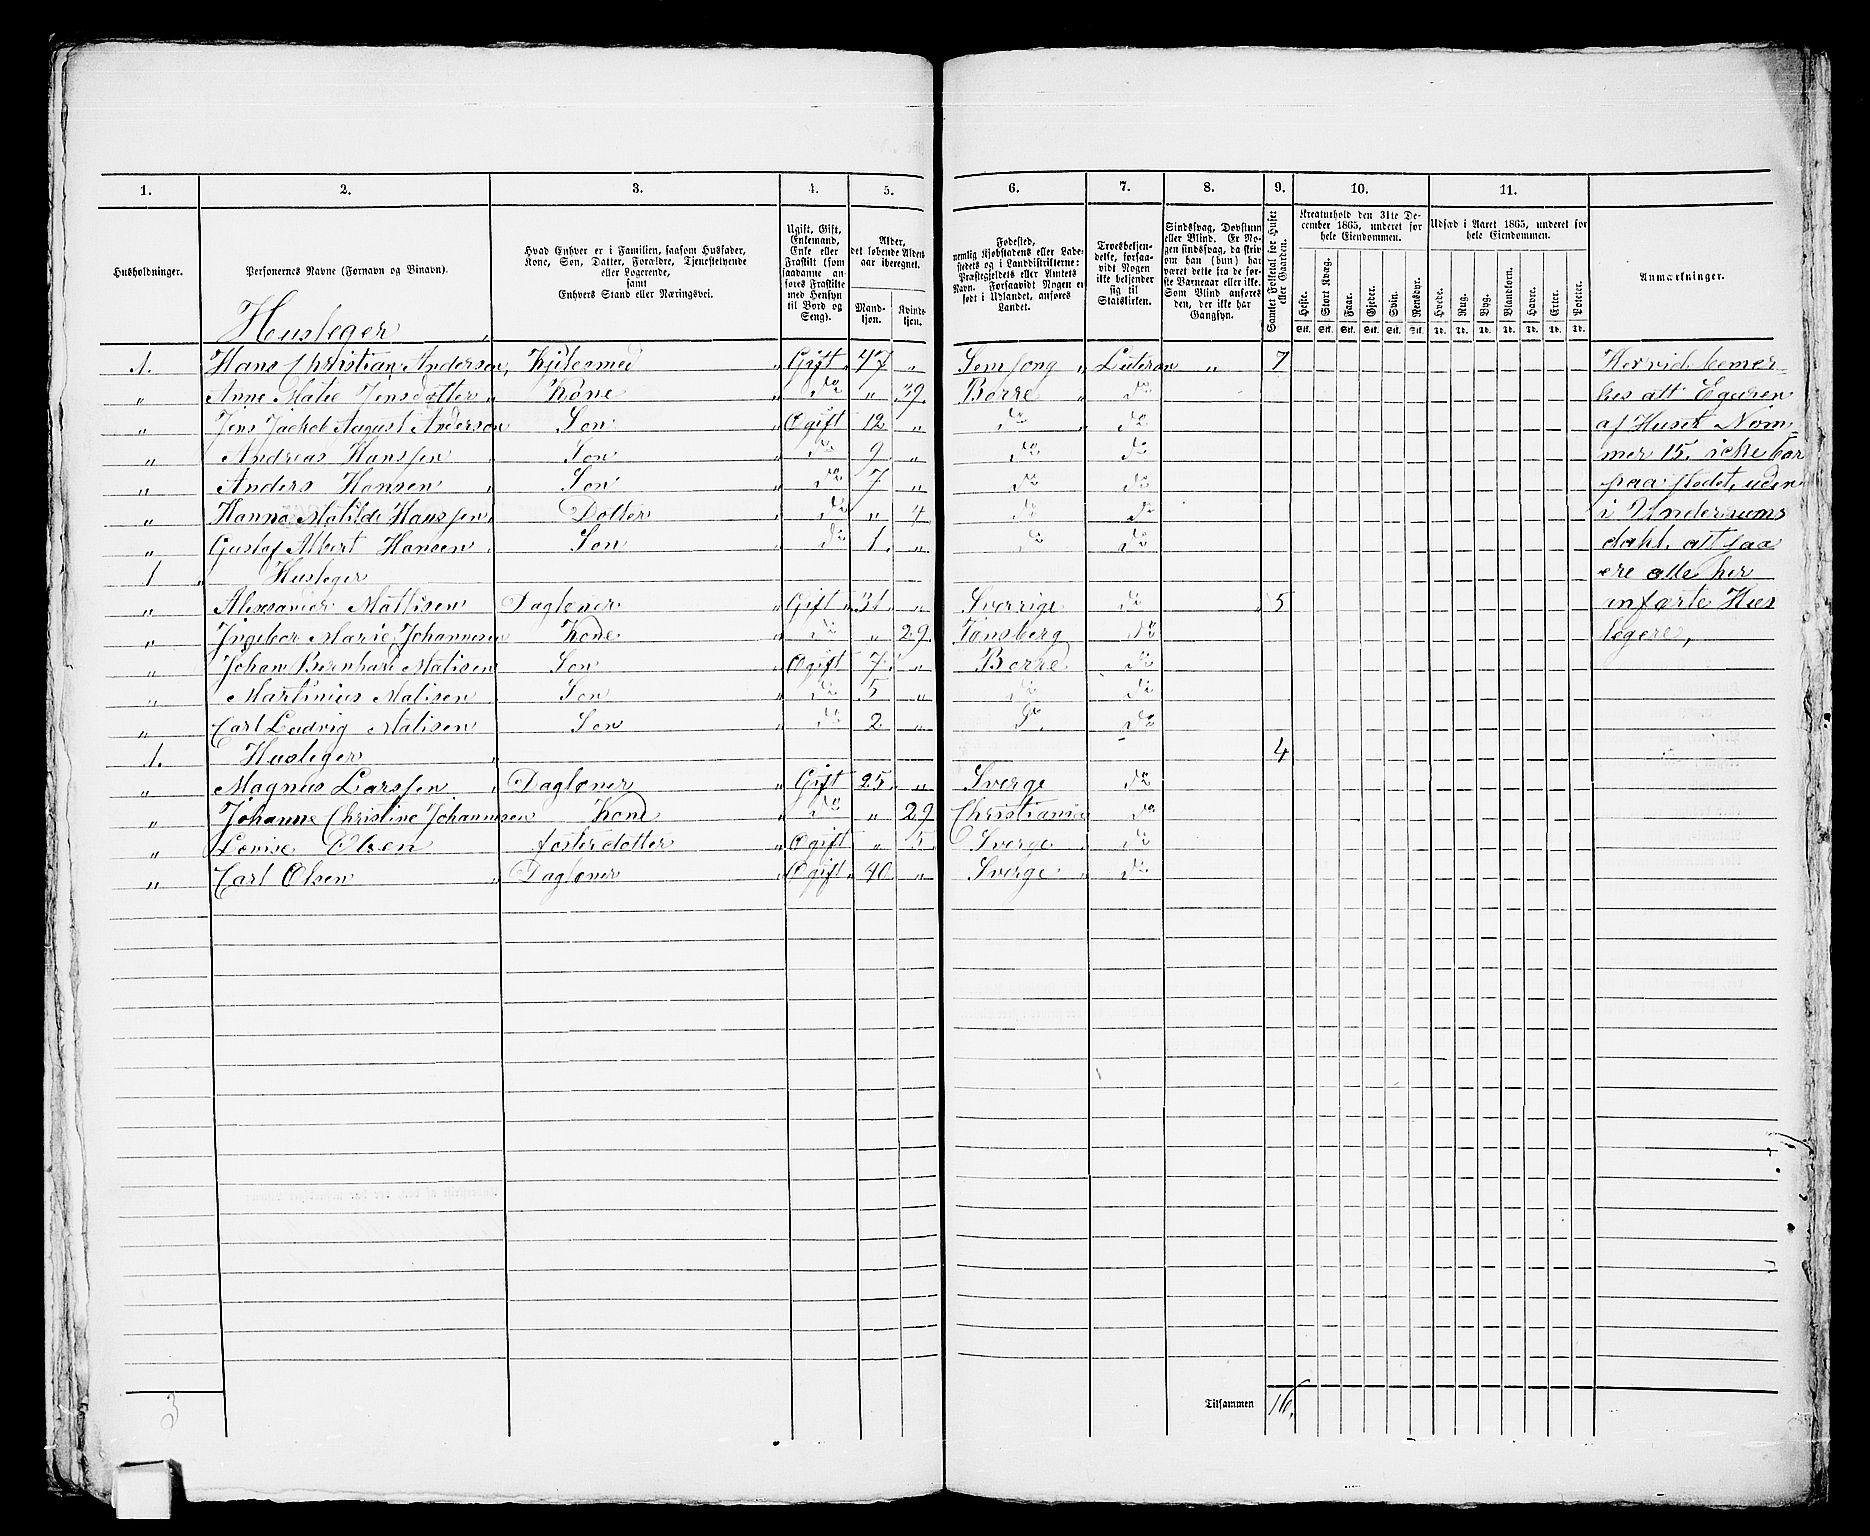 1. 2. 3. 4. 5. 6. 7. 8. 9. 10. 11.
Husholdninger.
Personernes Navne (Fornavn og Binavn).
Hvad Enhver er i Familien, saasom Husfader,
Kone, Søn, Datter, Forældre, Tjenestetyende
eller Logerende,
samt
Enhvers Stand eller Næringsvei.
Ugift, Gift,
Enkemand,
Enke eller
Fraskilt (som
saadanne an-
føres Fraskilte
med Hensyn
til Bord og
Seng).
Alder,
det løbende Alders-
aar iberegnet.
Mand-
kjøn.
Kvinde-
kjøn.
Fødested,
nemlig Kjøbstadens eller Lade-
stedets og i Landdistrikterne:
Præstegjeldets eller Amtets
Navn. Forsaavidt Nogen er
født i Udlandet, anføres
Landet.
Troesbekjen-
delse, forsaa-
vidt Nogen
ikke bekjender
sig til
Statskirken.
Sindssvag, Døvstum
eller Blind. Er No-
gen sindssvag, da skriv
om han (hun) har
været dette fra de før-
ste Barneaar eller ikke.
Som Blind anføres
den, der ikke har
Gangsyn.
Samlet Folketal for Huset
eller Gaarden.
Kreaturhold den 31te De-
cember 1865, underet for
hele Eiendommen.
Heste. Stort Kvæg. Faar. Gjeder. Svin. Rensdyr.
Stk. Stk. Stk. Stk. Stk. Stk.
Udsæd i Aaret 1865, underet for
hele Eiendommen.
Hvede. Rug. Byg. Blandkorn. Havre. Erter. Poteter.
Td. Td. Td. Td. Td. Td. Td.
Anmærkninger.
Husleger „
1. Hans Christian Andersen, Kjelesmed „ Gift „ 47 „ Semsong „ Luteran „ 7 Hervid bemer-
„ Anne Matie Jensdotter „ Kone do „ 39. Borre „ do kes att Egaren
„ Jens Jackob August Anderson Son „ Ogift 12 „ do „ do af Huset Nom-
„ Andreas Hanssen „ Son do 9 „ do do mer 15. icke bor
„ Anders Hansen „ Son „ do 7 „ do do paa stedet, uden
„ Hanna Matilde Hanssen, Dotter „ do „ 4 do do i Undersums
„ Gustaf Albert Hansen „ Son „ do 1. „ do do dahl. att saa
1 „ Husleger ere alle her
„ Alexsander Mathisen Dagloner „ Gift „ 31. „ Sverrige do „ 5 anførte Hus
„ Ingebor Marie Johannesen Kone „ do „ 29. Tønsberg do legere,
„ Johan Bernhard Matisen Son „ Ogift 7. „ Borre do
„ Martinius Matisen Son „ do 5 „ do do
„ Carl Ludvig Matisen Son „ do 2 „ do do
1. Husleger „ 4
„ Magnus Larssen Dagloner „ Gift 25. „ Sverge do
„ Johanne Christine Johannesen Kone „ do „ 29 Christiania do
„ Lovise Olsen fosterdotter „ Ogift „ 5 Sverge „ do
„ Carl Olsen „ Dagloner „ Ogift „ 40. „ Sverge „ do
3
Tilsammen 16.